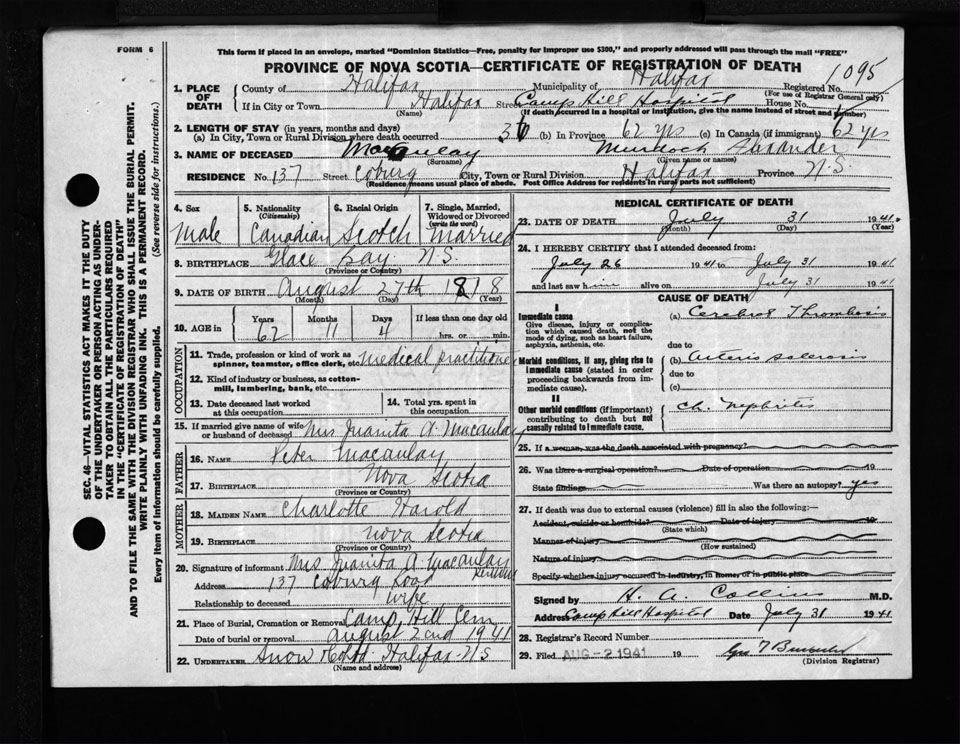 FORM 6
This form if placed in an envelope, marked "Dominion Statistics—Free, penalty for improper use $300," and properly addressed will pass through the mail "FREE"
PROVINCE OF NOVA SCOTIA—CERTIFICATE OF REGISTRATION OF DEATH
1. PLACE OF DEATH County of Halifax Municipality of Halifax Registered No. 1095
(For use of Registrar General only)
If in City or Town Halifax Street Camp Hill Hospital House No.
(Name) (If death occurred in a hospital or institution, give the name instead of street and number)
2. LENGTH OF STAY (in years, months and days)
(a) In City, Town or Rural Division where death occurred (b) In Province 62 yrs (c) In Canada (if immigrant) 62 yrs
3. NAME OF DECEASED Macaulay Murdoch
(Surname) (Given name or names)
RESIDENCE No. 137 Street Coburg City, Town or Rural Division Halifax Province N.S.
(Residence means usual place of abode. Post Office Address for residents in rural parts not sufficient)
4. Sex 5. Nationality (Citizenship) 6. Racial Origin 7. Single, Married, Widowed or Divorced (write the word)
Male Canadian Scotch Married
8. BIRTHPLACE Glace Bay N.S.
(Province or Country)
9. DATE OF BIRTH August 27th
(Month) (Day) (Year)
10. AGE in Years Months Days If less than one day old
62 11 4 hrs. or min.
OCCUPATION
11. Trade, profession or kind of work as spinner, teamster, office clerk, etc. medical practitioner
12. Kind of industry or business, as cotton-mill, lumbering, bank, etc.
13. Date deceased last worked at this occupation 14. Total yrs. spent in this occupation
15. If married give name of wife or husband of deceased Mrs Juanita A Macaulay
FATHER
16. NAME Peter Macaulay
17. BIRTHPLACE Nova Scotia
(Province or Country)
MOTHER
18. MAIDEN NAME Charlotte Harold
19. BIRTHPLACE Nova Scotia
(Province or Country)
20. Signature of informant Mrs Juanita A. Macaulay
Address 137 Coburg Road
Relationship to deceased wife
21. Place of Burial, Cremation or Removal Camp Hill Cem
Date of burial or removal August 2nd 1941
22. UNDERTAKER Snow Halifax N S
(Name and address)
MEDICAL CERTIFICATE OF DEATH
23. DATE OF DEATH July 31 1941.
(Month) (Day) (Year)
24. I HEREBY CERTIFY that I attended deceased from:
July 26 1941 to July 31 1941
and last saw him alive on July 31 1941
CAUSE OF DEATH
I
Immediate cause (a) Cerebral Thrombosis
Give disease, injury or complication which caused death, not the mode of dying, such as heart failure, asphyxia, asthenia, etc.
due to
Morbid conditions, if any, giving rise to immediate cause (stated in order proceeding backwards from immediate cause). (b) Arterio sclerosis
due to
(c)
II
Other morbid conditions (if important) contributing to death but not causally related to immediate cause. Ch. Nephritis
25. If a woman, was the death associated with pregnancy?
26. Was there a surgical operation? Date of operation 19
State findings Was there an autopsy? yes
27. If death was due to external causes (violence) fill in also the following:
Accident, suicide or homicide? Date of injury 19
(State which)
Manner of injury
(How sustained)
Nature of injury
Specify whether injury occurred in industry, in home, or in public place
Signed by H. A. Collins M.D.
Address Camp Hill Hospital Date July 31 1941
28. Registrar's Record Number
29. Filed AUG -2 1941 19
(Division Registrar)
SEC. 46—VITAL STATISTICS ACT MAKES IT THE DUTY
OF THE UNDERTAKER OR PERSON ACTING AS UNDER-
TAKER TO OBTAIN ALL THE PARTICULARS REQUIRED
IN THE "CERTIFICATE OF REGISTRATION OF DEATH"
AND TO FILE THE SAME WITH THE DIVISION REGISTRAR WHO SHALL ISSUE THE BURIAL PERMIT.
WRITE PLAINLY WITH UNFADING INK. THIS IS A PERMANENT RECORD.
Every item of Information should be carefully supplied. (See reverse side for instructions.)